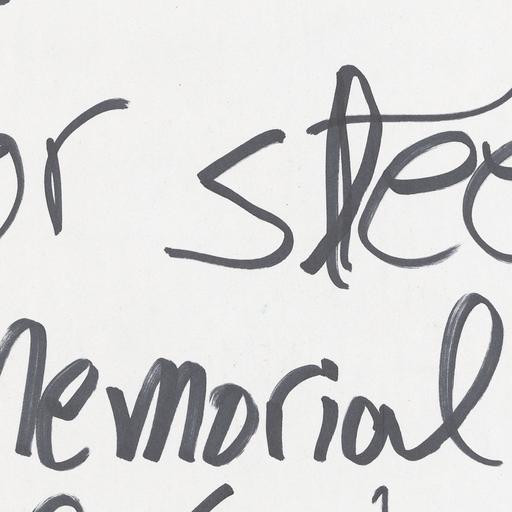 or stee
Memorial